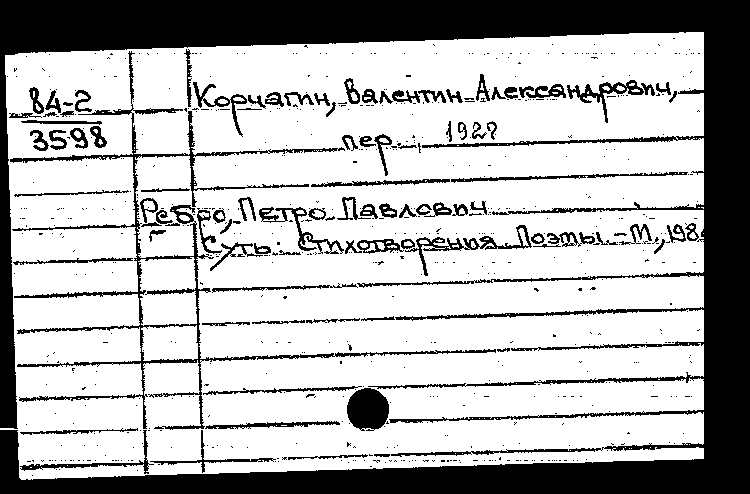 84-2
3598
Корчагин, Валентин Александрович,
пер. 1927
Ребро, Петро Павлович
Суть: Стихотворения. Поэмы. - М.,